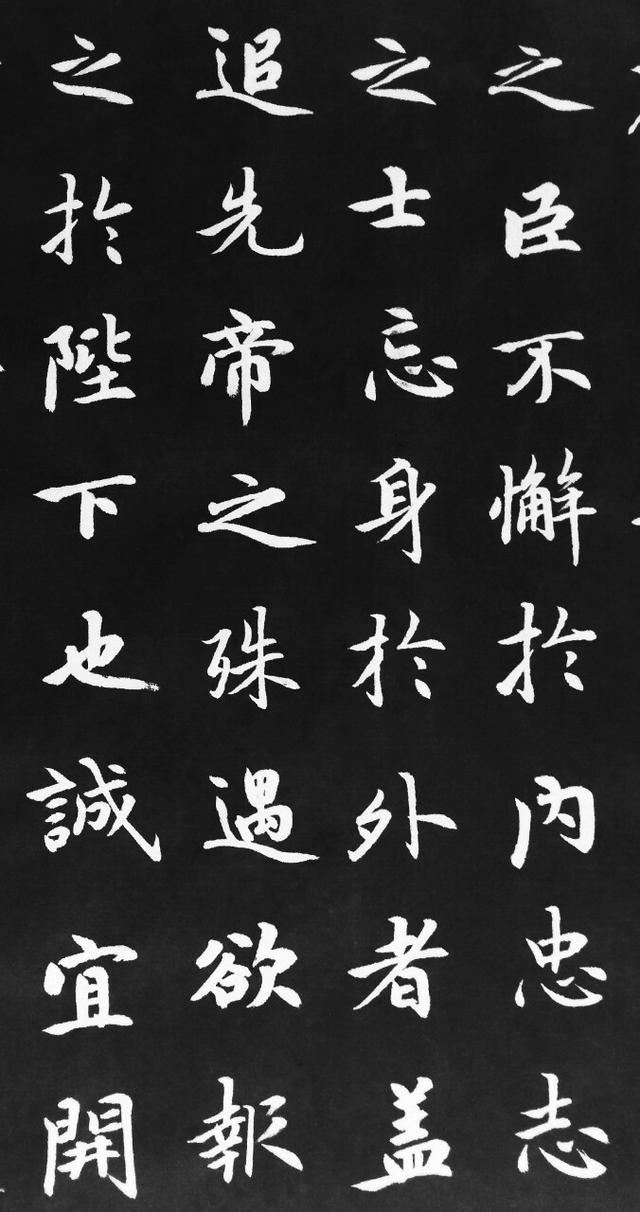 之臣不懈於内忠志
之士忘身於外者盖
追先帝之殊遇欲報
之於陛下也誠宜開